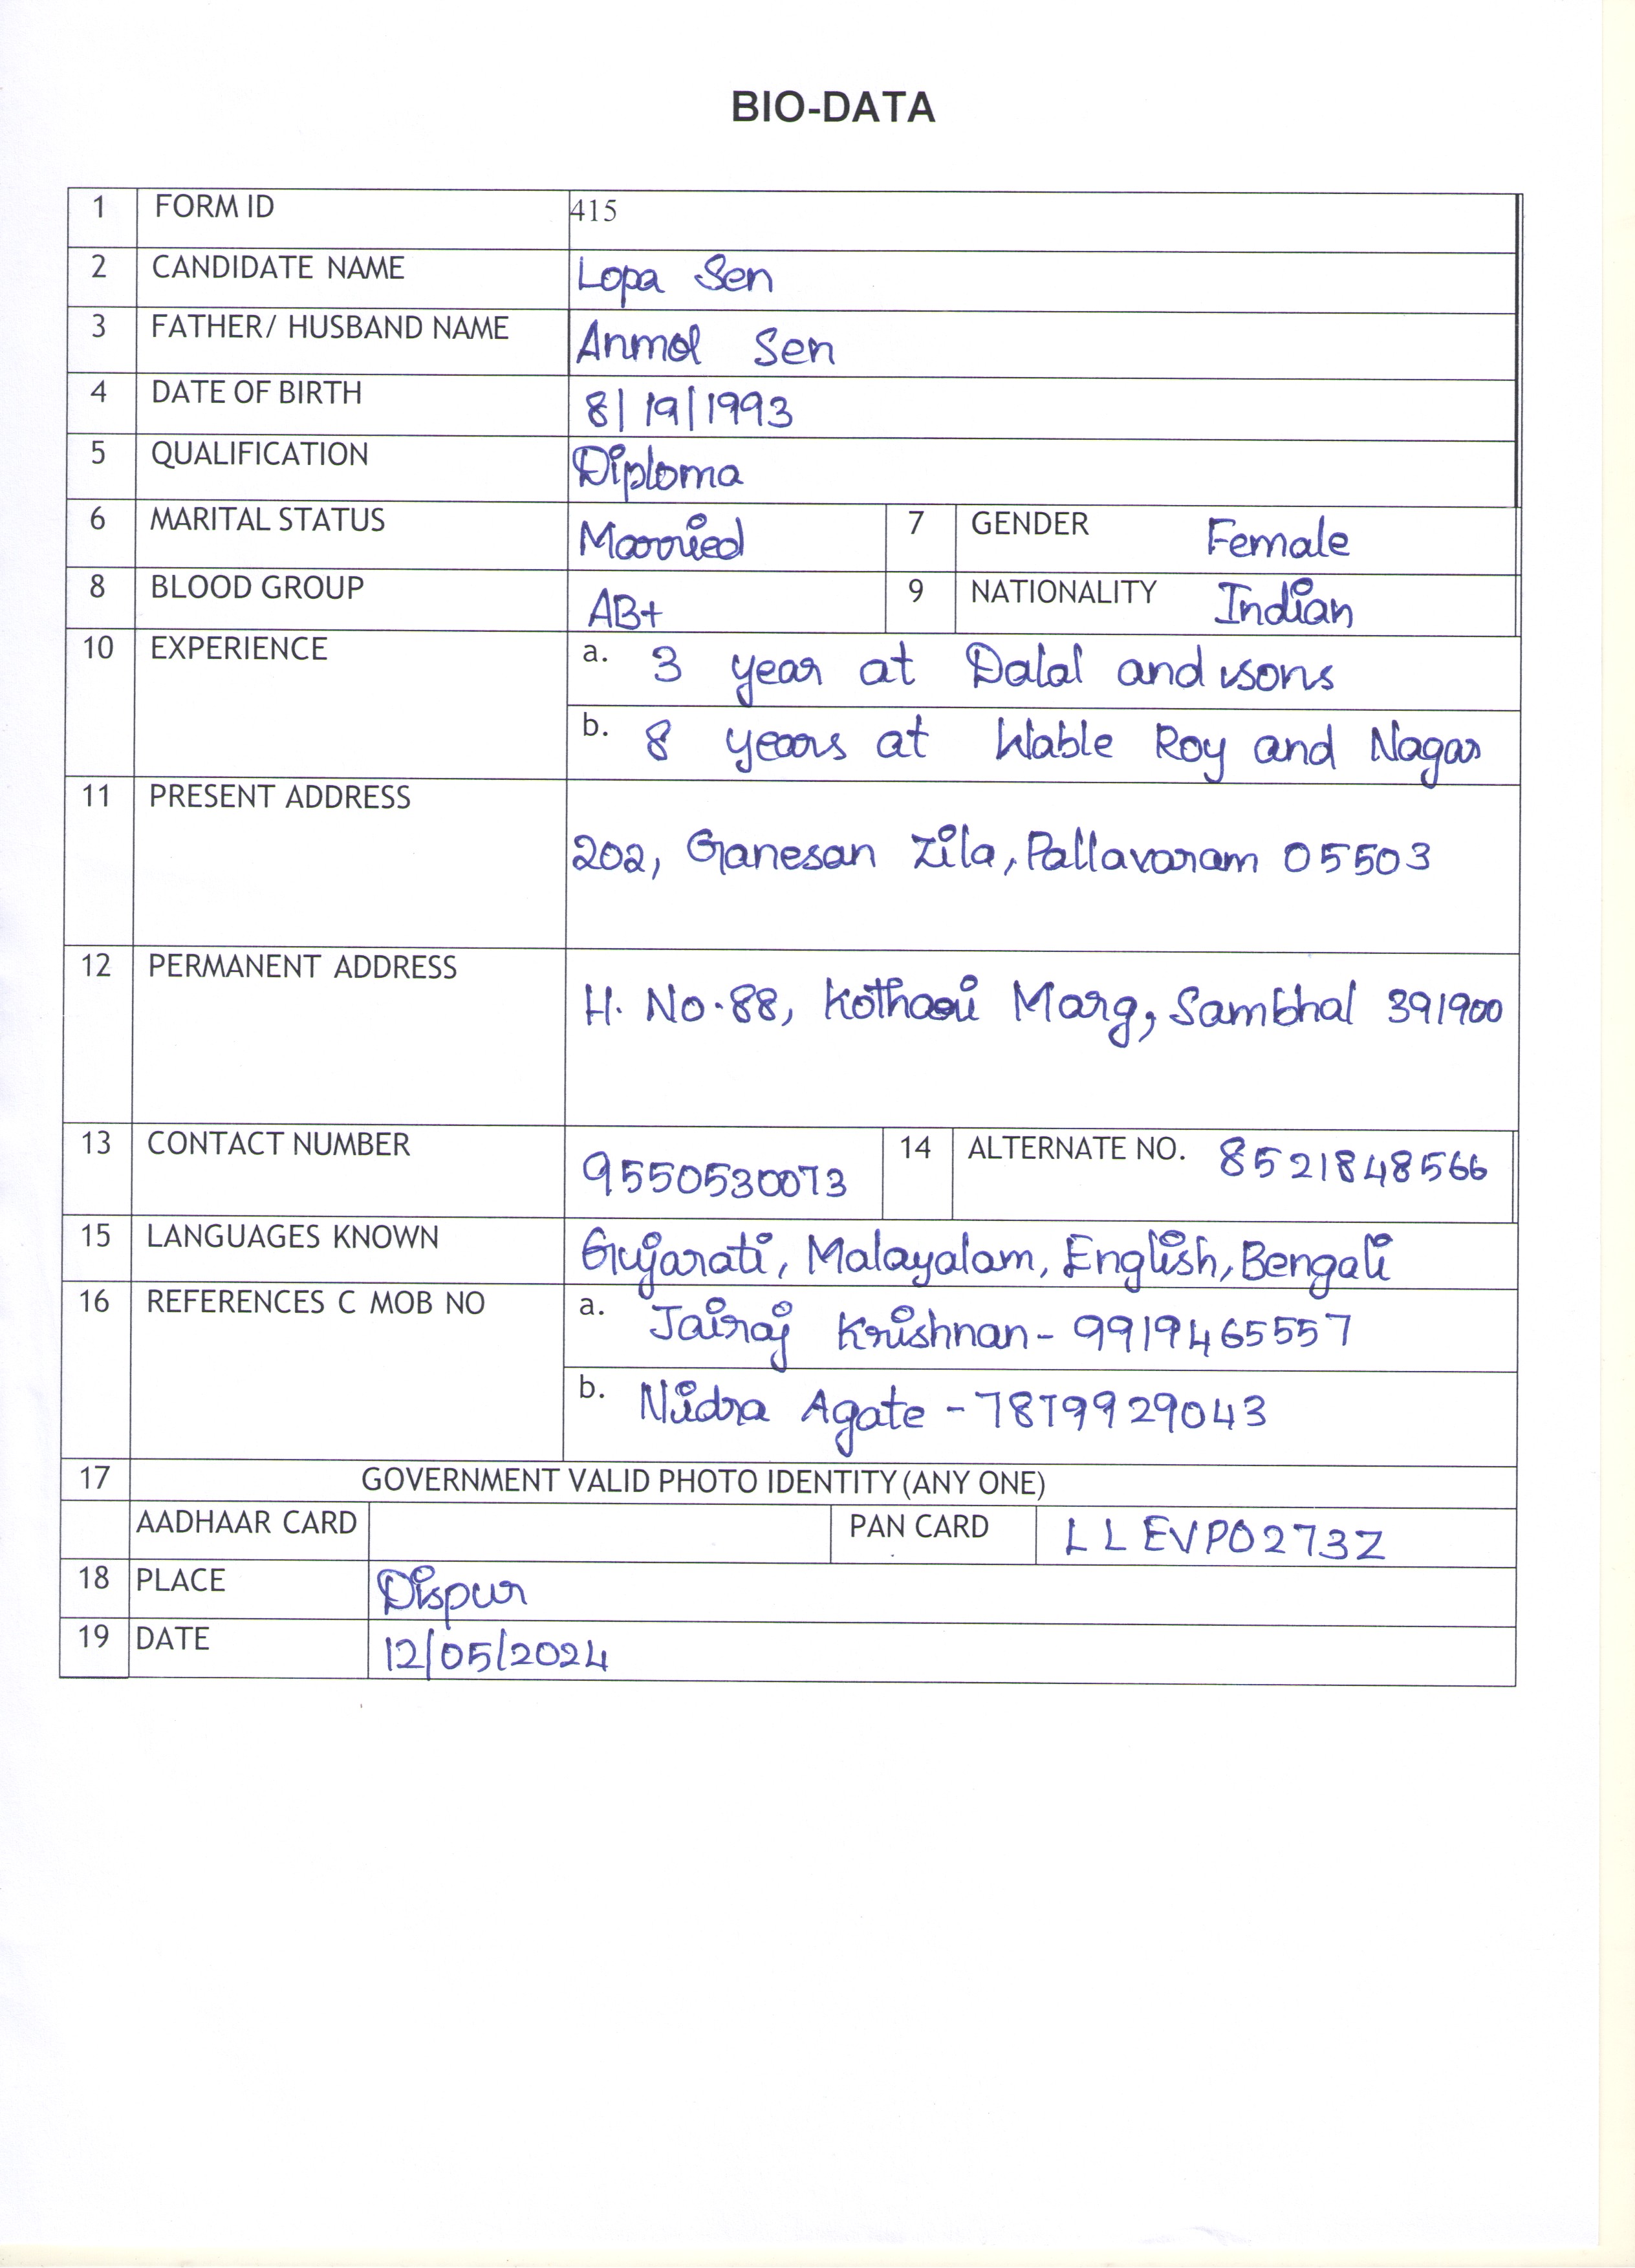 BIO-DATA
1 FORM ID 415
2 CANDIDATE NAME Lopa Sen
3 FATHER/ HUSBAND NAME Anmol Sen
4 DATE OF BIRTH 8/19/1993
5 QUALIFICATION Diploma
6 MARITAL STATUS Married 7 GENDER Female
8 BLOOD GROUP AB+ 9 NATIONALITY Indian
10 EXPERIENCE a. 3 year at Dalal and sons
b. 8 years at Wable Roy and Nagar
11 PRESENT ADDRESS
202, Ganesan Zila, Pallavaram 05503
12 PERMANENT ADDRESS
H. No.88, Kothari Marg, Sambhal 391900
13 CONTACT NUMBER 9550530073 14 ALTERNATE NO. 8521848566
15 LANGUAGES KNOWN Gujarati, Malayalam, English, Bengali
16 REFERENCES C MOB NO a. Jairaj Krishnan- 9919465557
b. Nidra Agate - 7879929043
17 GOVERNMENT VALID PHOTO IDENTITY (ANY ONE)
AADHAAR CARD PAN CARD LLEVP0273Z
18 PLACE Dispur
19 DATE 12/05/2024